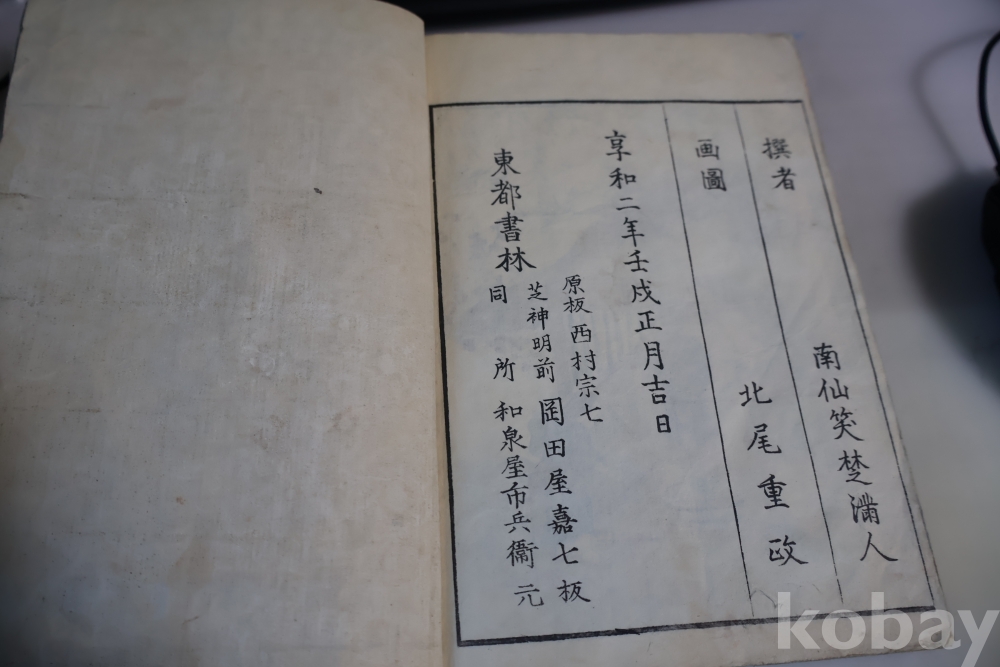 撰者 南仙笑楚滿人
画圖 北尾重政
享和二年壬戌正月吉日
原板 西村宗七
東都書林 芝神明前 岡田屋嘉七板
同所 和泉屋市兵衞元
kobay